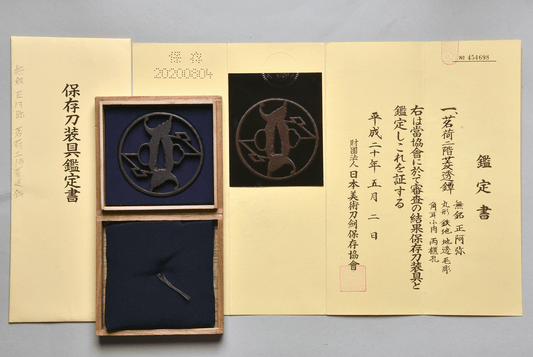 保存刀装具鑑定書
保存
20200804
No 454698
鑑定書
一、茗荷二階菱透鐔
無銘 正阿弥
丸形 鉄地 地透 毛彫
角耳小肉 両櫃孔
右は當協會に於て審査の結果保存刀装具と
鑑定しこれを証する
平成二十年五月二日
財團法人 日本美術刀剣保存協會